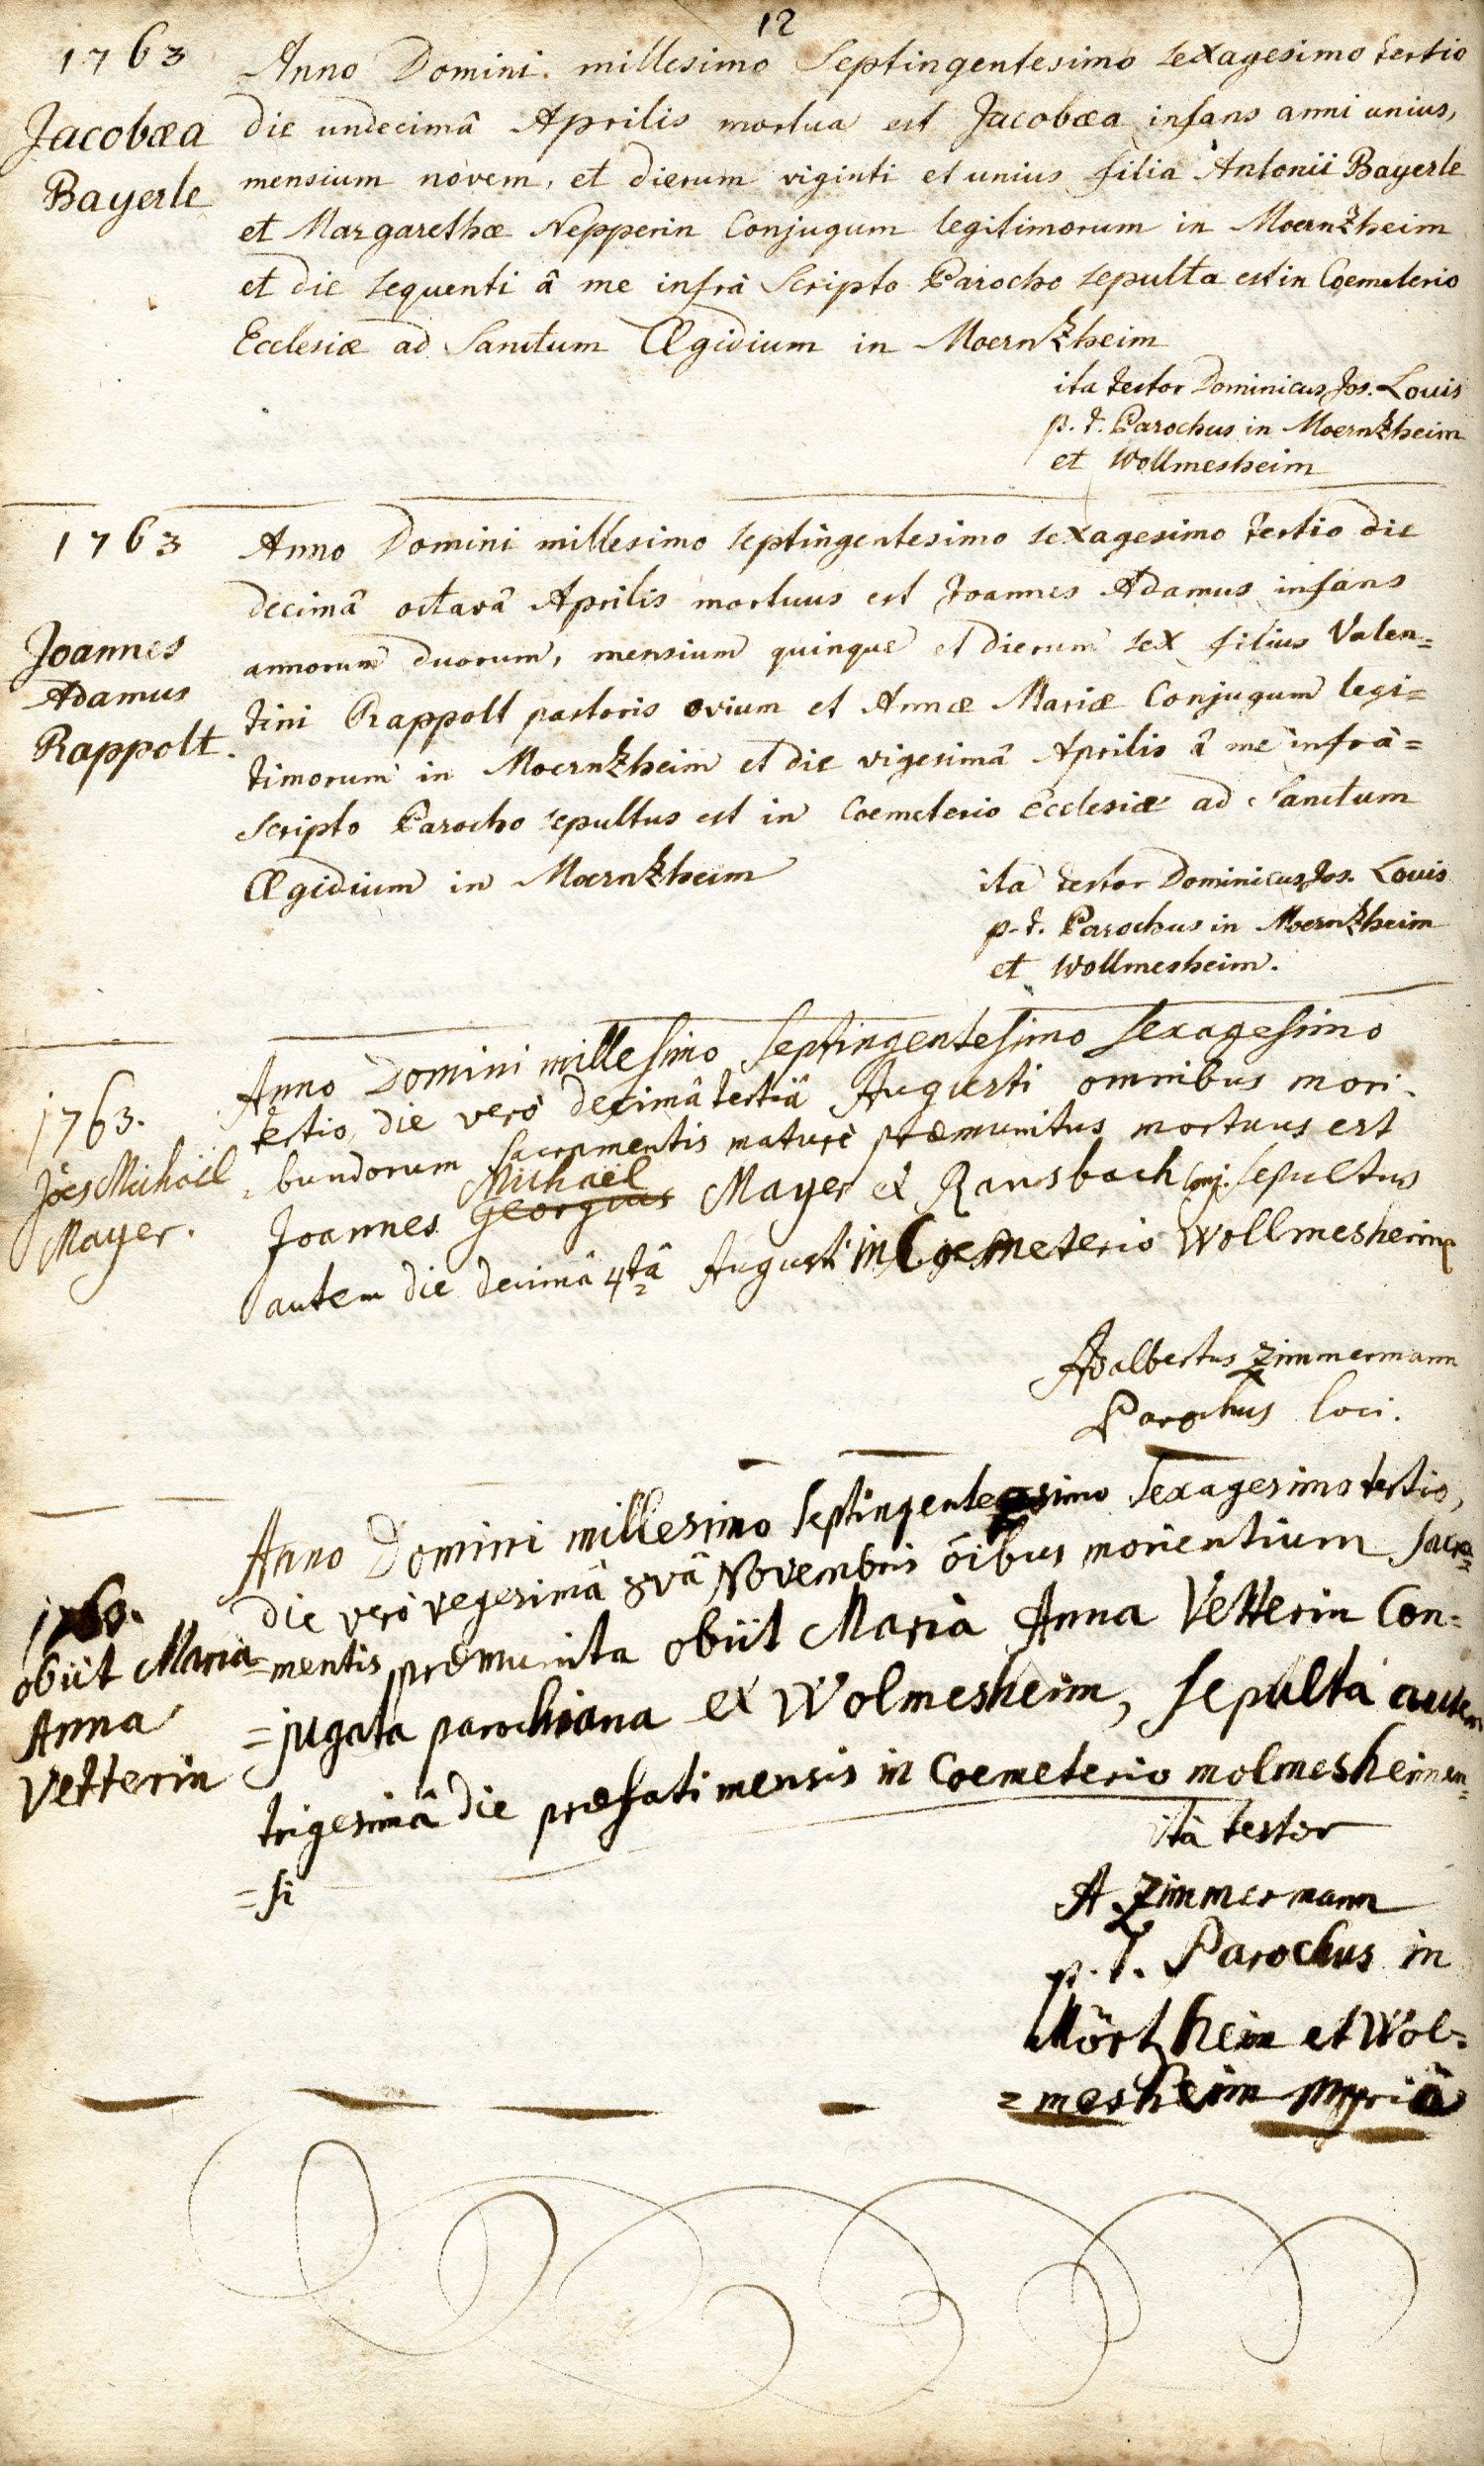 12
1763
Jacobæa
Bayerle
Anno Domini millesimo Septingentesimo sexagesimo tertio
die undecimâ Aprilis mortua est Jacobæa infans anni unius,
mensium novem, et dierum viginti et unius filia Antonii Bayerle
et Margarethæ Nepperin Conjugum legitimorum in Moernzheim
et die sequenti â me infrà Scripto Parocho sepulta est in Coemeterio
Ecclesiæ ad Sanctum Ægidium in Moernzheim
ita testor Dominicus Jos. Louis
p. t. Parochus in Moernzheim
et Wollmesheim
1763
Joannes
Adamus
Rappolt.
Anno Domini millesimo septingentesimo sexagesimo tertio die
decimâ octavâ Aprilis mortuus est Joannes Adamus infans
annorum duorum, mensium quinque et dierum sex filius Valen=
tini Rappolt pastoris ovium et Annæ Mariæ Conjugum legi=
timorum in Moernzheim et die vigesimâ Aprilis â me infrà=
Scripto Parocho sepultus est in Coemeterio Ecclesiæ ad Sanctum
Ægidium in Moernzheim
ita testor Dominicus Jos. Louis
p. t. Parochus in Moernzheim
et Wollmesheim.
1763.
Jões Michaël
Mayer.
Anno Domini millesimo Septingentesimo Sexagesimo
tertio, die verò decimâ tertiâ Augusti omnibus mori=
=bundorum sacramentis maturè præmunitus mortuus est
Michaël
Joannes Georgius Mayer ex Ransbach conj. Sepultus
autem die decimâ 4tâ Augusti in Coemeterio Wollmesheim
Adalbertus Zimmermann
Parochus loci.
obiit Maria
Anna
Vetterin
Anno Domini millesimo Septingentesimo Sexagesimo tertio,
die verò vegesimâ 8vâ Novembris õibus morientium Sacra=
=mentis præmunita obiit Maria Anna Vetterin Con=
=jugata parochiana ex Wolmesheim, Sepulta autem
trigesimâ die præfati mensis in Coemeterio molmesheimen=
=si
ità testor
A Zimmermann
p. t. Parochus in
Mörtzheim et Wol=
=mesheim mpriâ